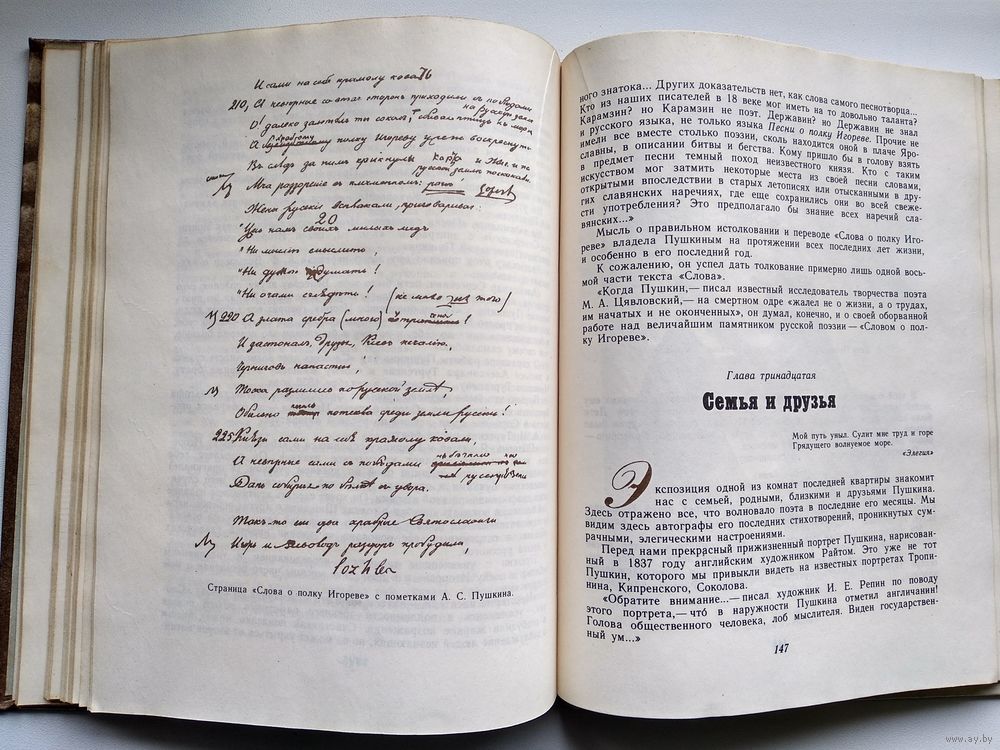 И сами на себя крамолу ковать
210, А неверные со всех сторон приходили с победами
на русскую землю
О! далеко
А храброму полку Игореву уже не воскреснуть
Вслед за ним крикнули и Жля, и по
русской земле поскакали
Мча раздорение в пламенном роге
Жены русские всплакали, приговаривая:
"Уже нам своих милых ладъ
20
"Ни мыслию смыслити,
"Ни думою думать!
"Ни очами сглядеть!
220 А злата сребра (много)
И застонал, друзья, Киев печалию,
Чернигов напастию,
Тоска разлилась по русской земле,
Обильно потекла среди земли русской!
225 Князи сами на себя крамолу ковали,
А неверные сами с победами
Дань собирая по белке с двора.
Так-то сии два храбрые Святославича
Игорь и Всеволод раздор пробудили,
Страница «Слова о полку Игореве» с пометками А. С. Пушкина.
ного знатока... Других доказательств нет, как слова самого песнотворца...
Кто из наших писателей в 18 веке мог иметь на то довольно таланта?
Карамзин? но Карамзин не поэт. Державин? но Державин не знал
и русского языка, не только языка Песни о полку Игореве. Прочие не
имели все вместе столько поэзии, сколь находится оной в плаче Яро-
славны, в описании битвы и бегства. Кому пришло бы в голову взять
в предмет песни темный поход неизвестного князя. Кто с таким
искусством мог затмить некоторые места из своей песни словами,
открытыми впоследствии в старых летописях или отысканными в дру-
гих славянских наречиях, где еще сохранились они во всей свеже-
сти употребления? Это предполагало бы знание всех наречий сла-
вянских...»
Мысль о правильном истолковании и переводе «Слова о полку Иго-
реве» владела Пушкиным на протяжении всех последних лет жизни,
и особенно в его последний год.
К сожалению, он успел дать толкование примерно лишь одной вось-
мой части текста «Слова».
«Когда Пушкин,— писал известный исследователь творчества поэта
М. А. Цявловский,— на смертном одре «жалел не о жизни, а о трудах,
им начатых и не оконченных», он думал, конечно, и о своей оборванной
работе над величайшим памятником русской поэзии — «Словом о пол-
ку Игореве».
Глава тринадцатая
Семья и друзья
Мой путь уныл. Сулит мне труд и горе
Грядущего волнуемое море.
«Элегия»
Экспозиция одной из комнат последней квартиры знакомит
нас с семьей, родными, близкими и друзьями Пушкина.
Здесь отражено все, что волновало поэта в последние его месяцы. Мы
видим здесь автографы его последних стихотворений, проникнутых сум-
рачными, элегическими настроениями.
Перед нами прекрасный прижизненный портрет Пушкина, нарисован-
ный в 1837 году английским художником Райтом. Это уже не тот
Пушкин, которого мы привыкли видеть на известных портретах Тропи-
нина, Кипренского, Соколова.
«Обратите внимание...— писал художник И. Е. Репин по поводу
этого портрета,— что́ в наружности Пушкина отметил англичанин!
Голова общественного человека, лоб мыслителя. Виден государствен-
ный ум...»
147
www.ay.by